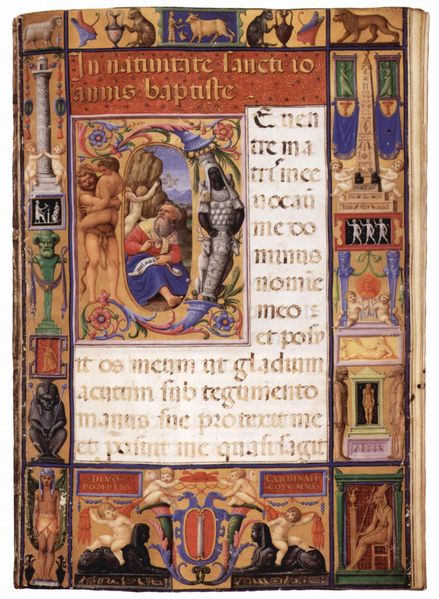 In natiuitate sancti io
annis baptiste
E uen
tre ma
tris mee
uocauit
me do
minus
nomie
meo:
et posu
it os meum ut gladium
acutum sub tegumento
manus sue protexit me
et posuit me quasi sagit
DIVO
POMPEIO
CARDINALI
COLVMNA